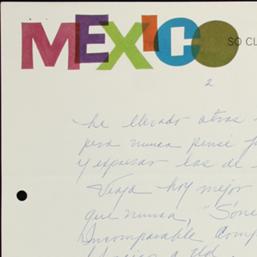 MEXICO
SO CL
2
ha llevado otras
pero nunca pensé
y esposas las de
Viaja hoy mejor
que nunca, "Sóne
Incomparable Comp